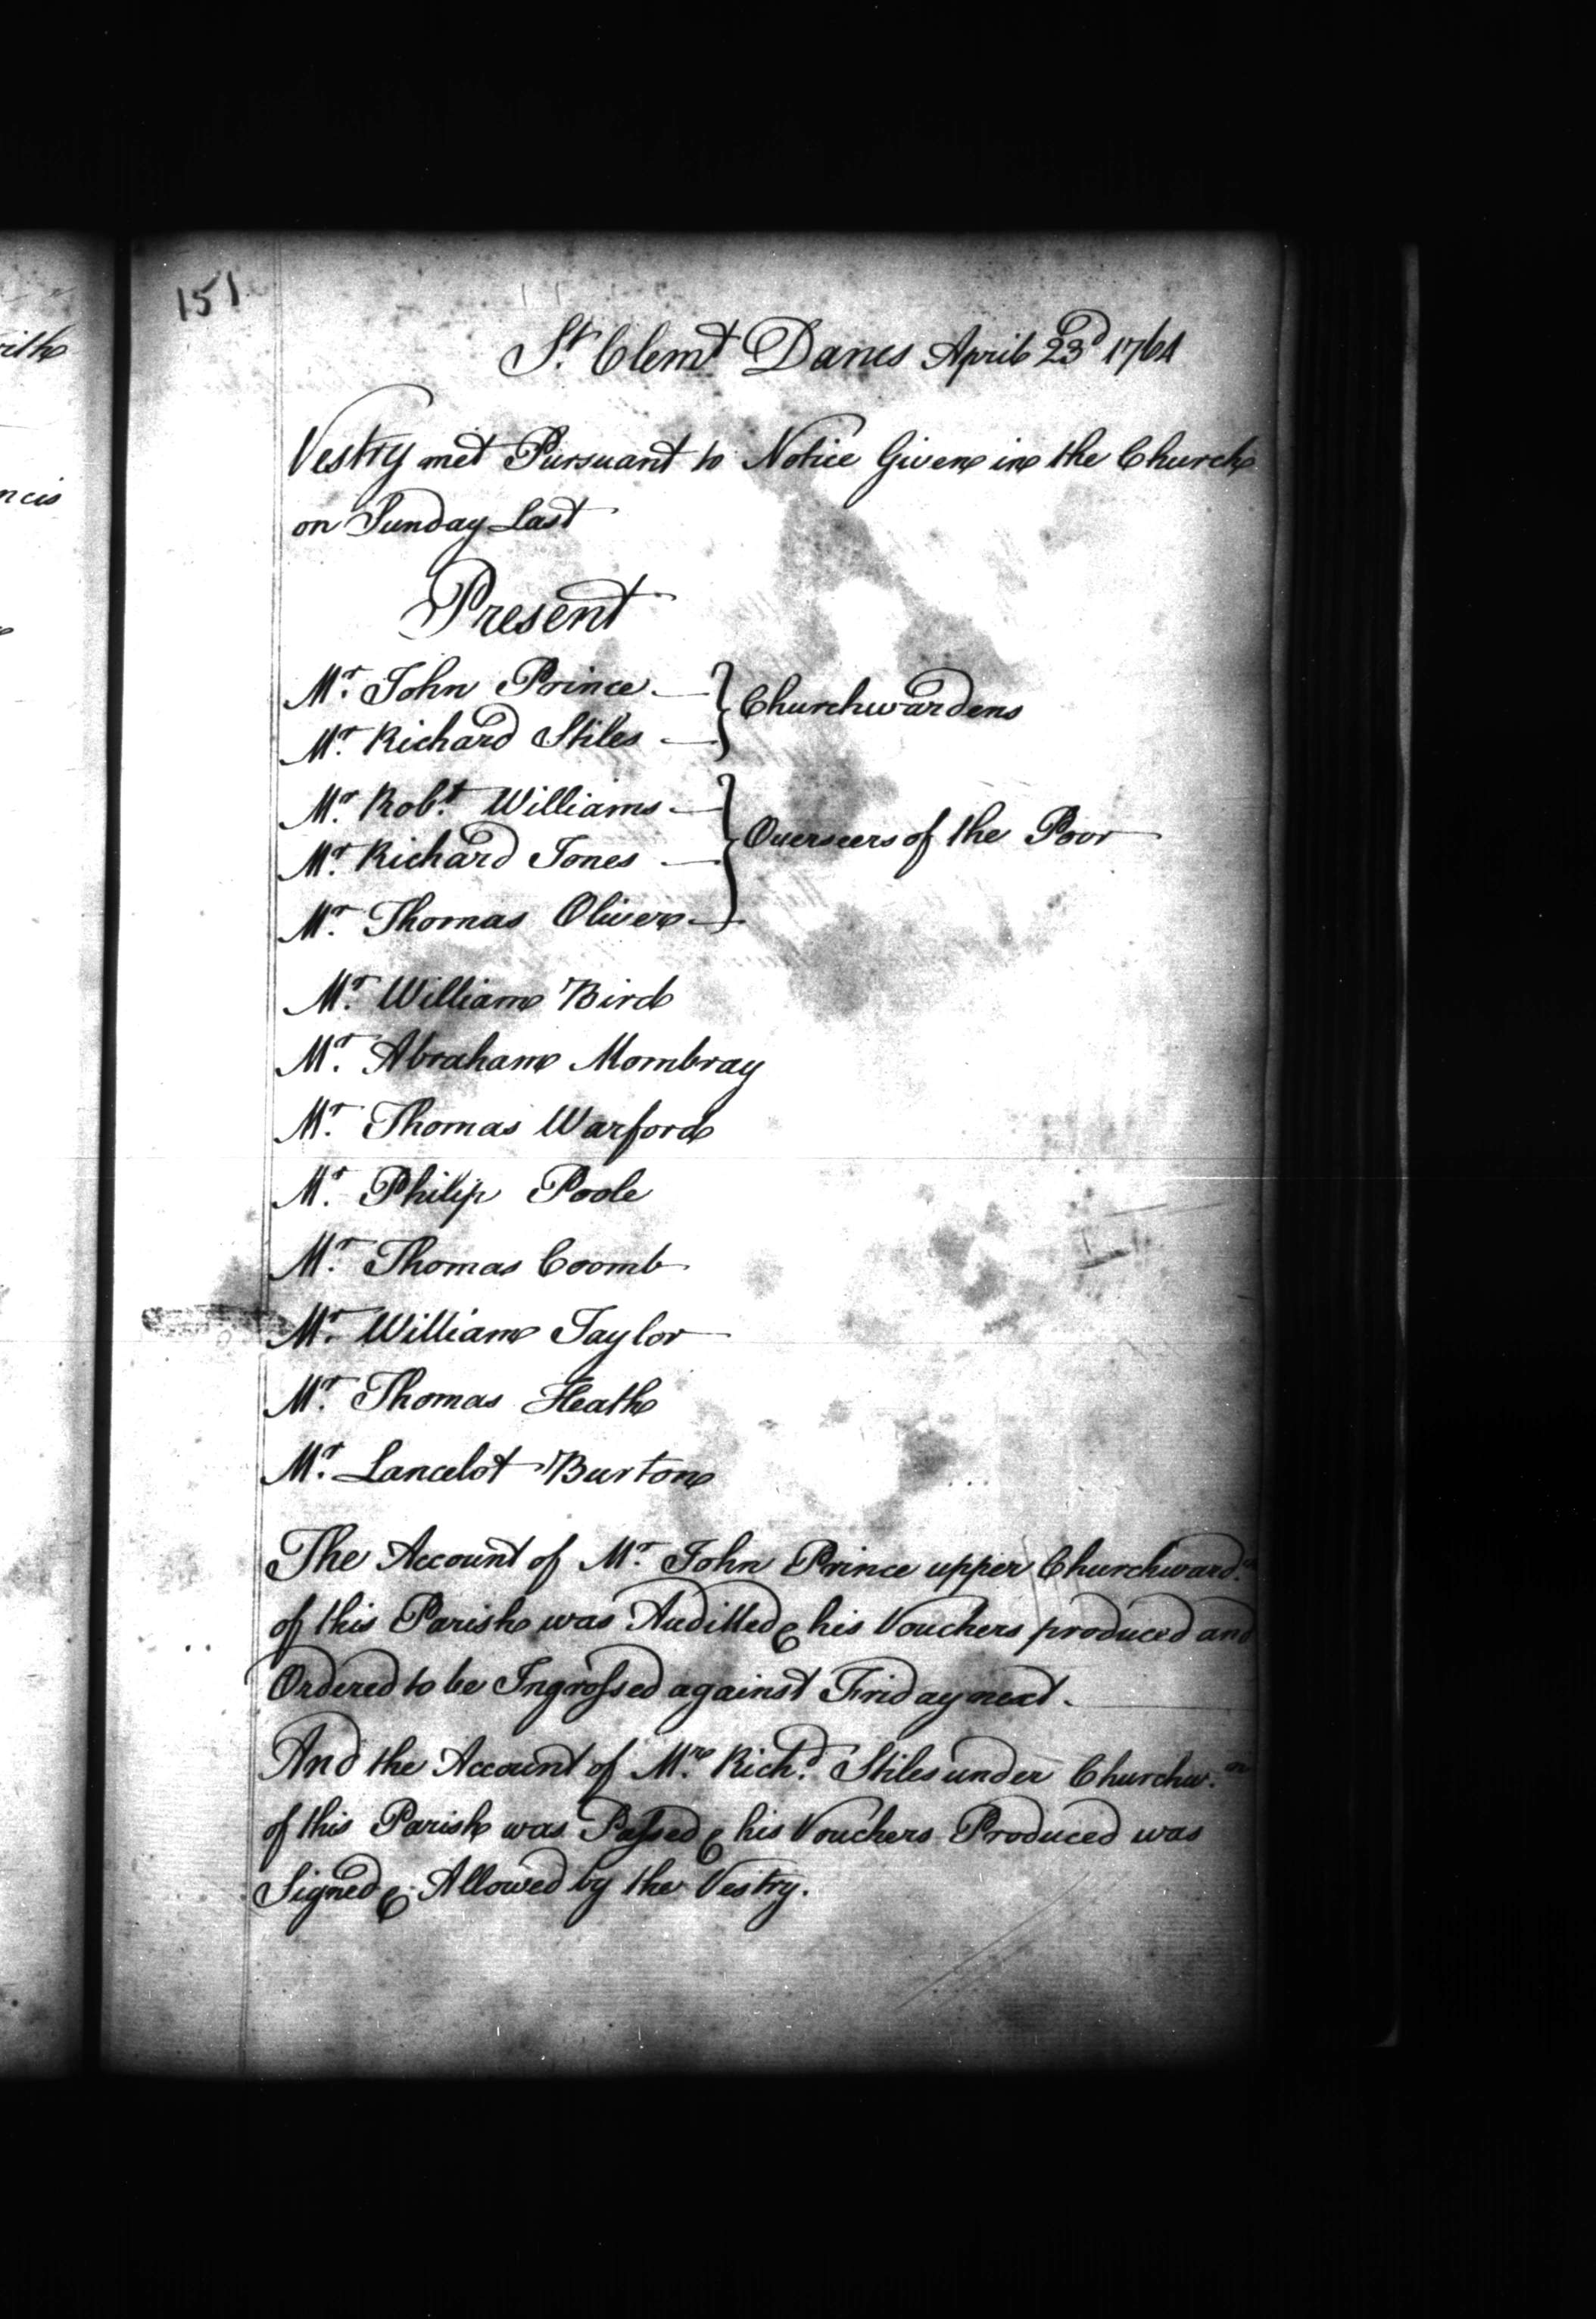 151
St. Clemt Danes April 23d 1764
Vestry met Pursuant to Notice Given in the Church
on Sunday Last
Present
Mr. John Prince
Churchwardens
Mr. Richard Stiles
Mr. Robt. Williams
Mr. Richard Jones
Overseers of the Poor
Mr. Thomas Oliver
Mr. William Bird
Mr. Abraham Mombray
Mr. Thomas Warford
Mr. Philip Poole
Mr. Thomas Coomb
Mr. William Taylor
Mr. Thomas Heath
Mr. Lancelot Burton
The Account of Mr. John Prince upper Churchward.n
of this Parish was Auditted & his Vouchers produced and
Ordered to be Ingrossed against Friday next.
And the Account of Mr. Richd. Stiles under Churchw.n
of this Parish was Passed & his Vouchers Produced was
Signed & Allowed by the Vestry.